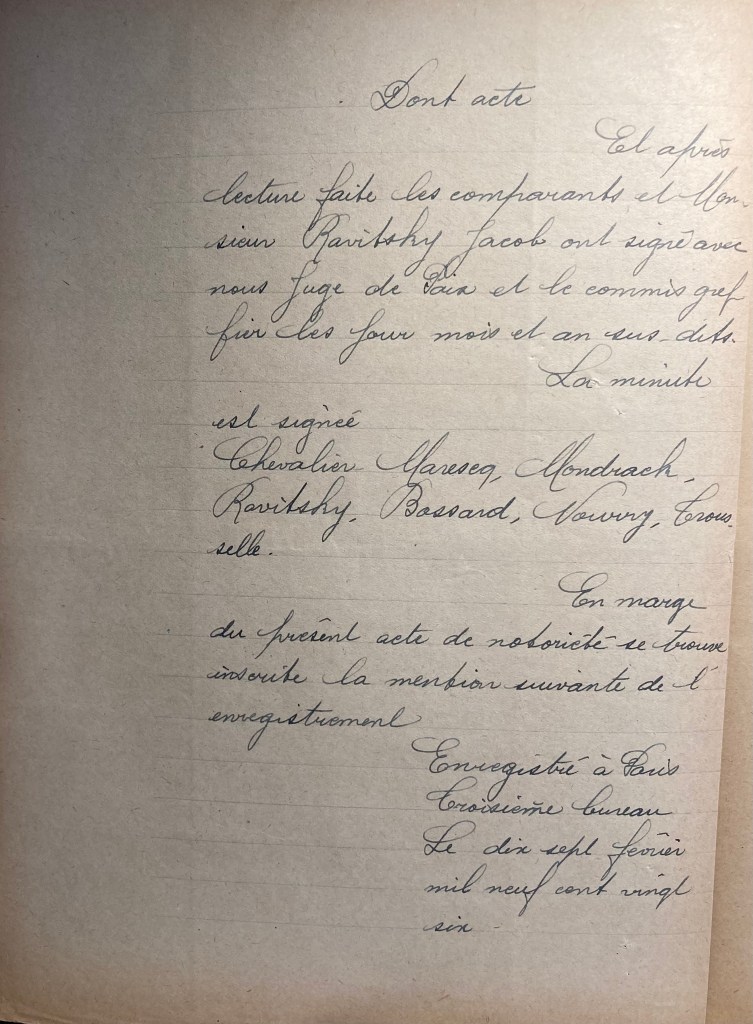 Dont acte
Et après
lecture faite les comparants et Mon-
sieur Ravitsky Jacob ont signé avec
nous Juge de Paix et le commis gref
fier les jour mois et an sus-dits.
La minute
est signée
Chevalier Marescq, Mondrack,
Ravitsky, Bossard, Nowvry, Trous-
selle.
En marge
du présent acte de notoriété se trouve
inscrite la mention suivante de l'
enregistrement
Enregistré à Paris
Troisième bureau
Le dix sept février
mil neuf cent vingt
six -